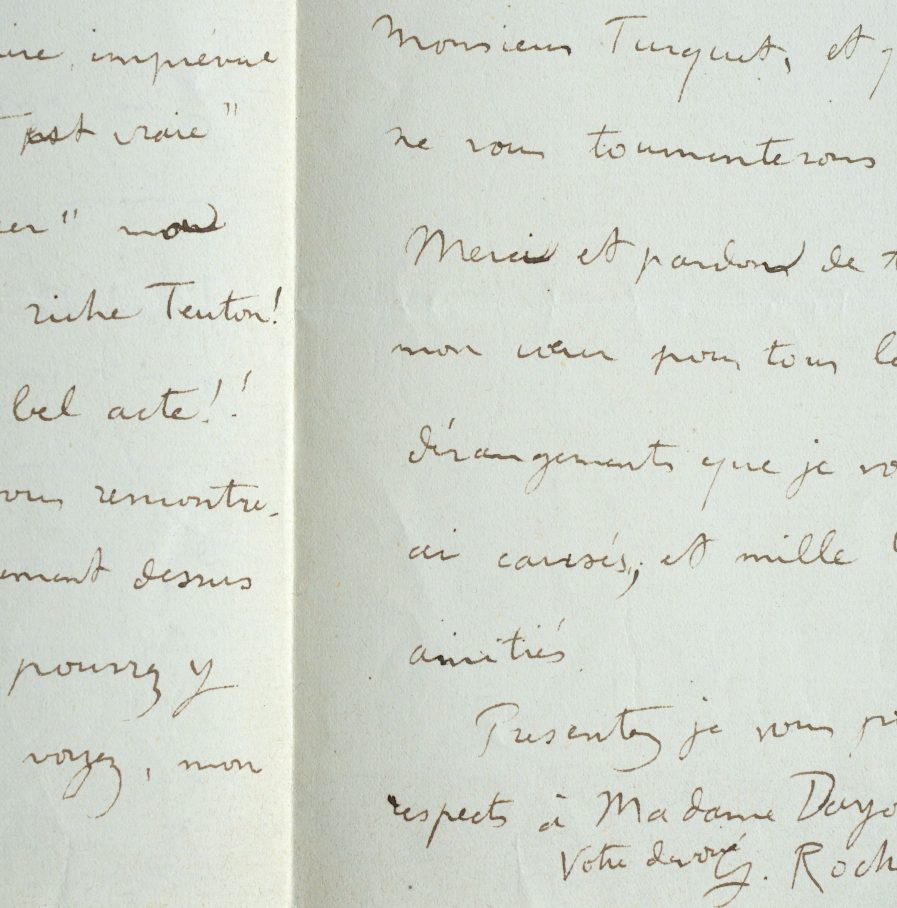 imprévue
est vraie"
mon
riche Teuton!
bel acte!!
remontre-
dessus
pourrez y
voyez, mon
Monsieur Turquet, et
ne vous tourmenterons
Merci et pardon de
mon cœur pour tous
dérangements que je
ai causés, et mille
amitiés
Presentez je vous
respects à Madame
Votre dévoué G. Roch